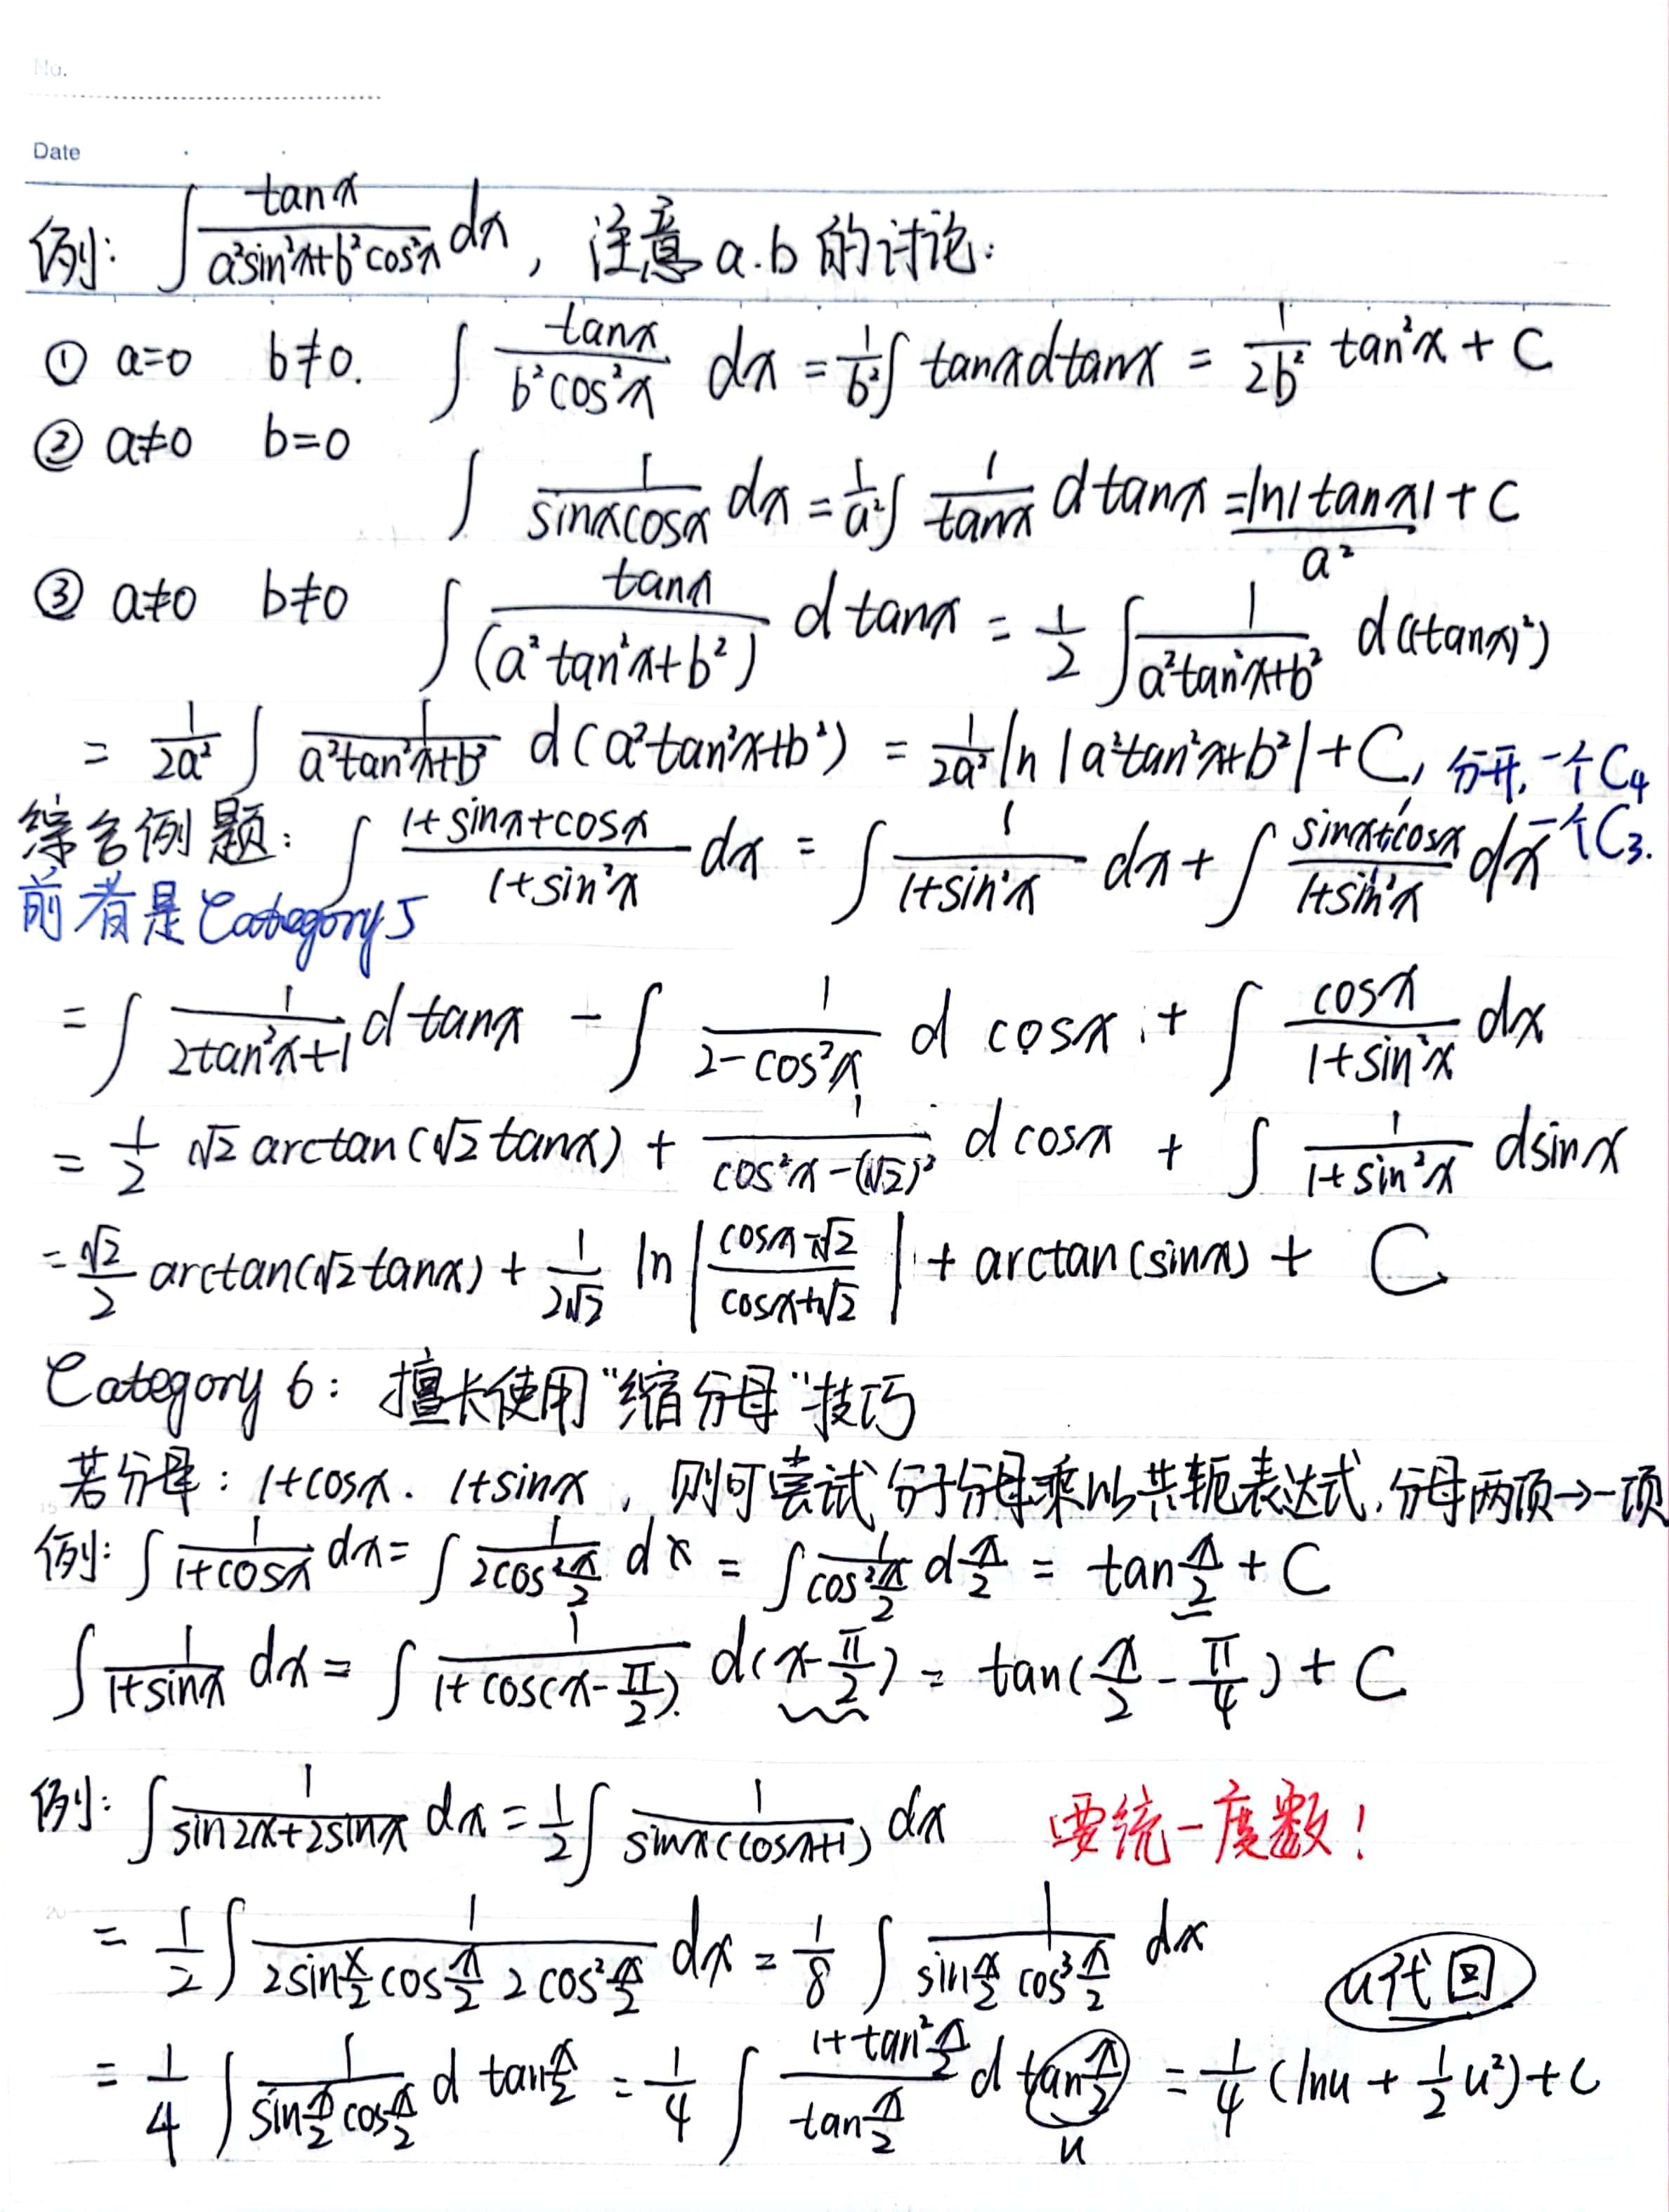 No.
Date
例: ∫ tanx/(a²sin²x+b²cos²x) dx, 注意 a.b 的讨论:
① a=0 b≠0. ∫ tanx/(b²cos²x) dx = 1/b² ∫ tanx dtanx = 1/(2b²) tan²x + C
② a≠0 b=0
∫ 1/(sinxcosx) dx = 1/a² ∫ 1/tanx d tanx = ln|tanx|/a² + C
③ a≠0 b≠0 ∫ tanx/(a²tan²x+b²) d tanx = 1/2 ∫ 1/(a²tan²x+b²) d((tanx)²)
= 1/(2a²) ∫ 1/(a²tan²x+b²) d(a²tan²x+b²) = 1/(2a²) ln|a²tan²x+b²| + C, 分开, 一个C₄
综合例题: ∫ (1+sinx+cosx)/(1+sin²x) dx = ∫ 1/(1+sin²x) dx + ∫ (sinx+cosx)/(1+sin²x) dx 一个C₃.
前者是Category 5
= ∫ 1/(2tan²x+1) d tanx - ∫ 1/(2-cos²x) d cosx + ∫ cosx/(1+sin²x) dx
= 1/2 √2 arctan(√2 tanx) + 1/(cos²x-(√2)²) d cosx + ∫ 1/(1+sin²x) dsinx
= √2/2 arctan(√2tanx) + 1/(2√2) ln|(cosx-√2)/(cosx+√2)| + arctan(sinx) + C
Category 6: 擅长使用“缩分母”技巧
若分母: 1+cosx. 1+sinx, 则可尝试分子分母乘以共轭表达式, 分母两项→一项
例: ∫ 1/(1+cosx) dx = ∫ 1/(2cos²x/2) dx = ∫ 1/(cos²x/2) d x/2 = tan x/2 + C
∫ 1/(1+sinx) dx = ∫ 1/(1+cos(x-π/2)) d(x-π/2) = tan(x/2-π/4) + C
例: ∫ 1/(sin2x+2sinx) dx = 1/2 ∫ 1/(sinx(cosx+1)) dx 要统一度数!
= 1/2 ∫ 1/(2sin x/2 cos x/2 2cos² x/2) dx = 1/8 ∫ 1/(sin x/2 cos³ x/2) dx
u代回
= 1/4 ∫ 1/(sin x/2 cos x/2) d tan x/2 = 1/4 ∫ (1+tan² x/2)/(tan x/2) d tan x/2 = 1/4 (lnu + 1/2 u²) + C
u